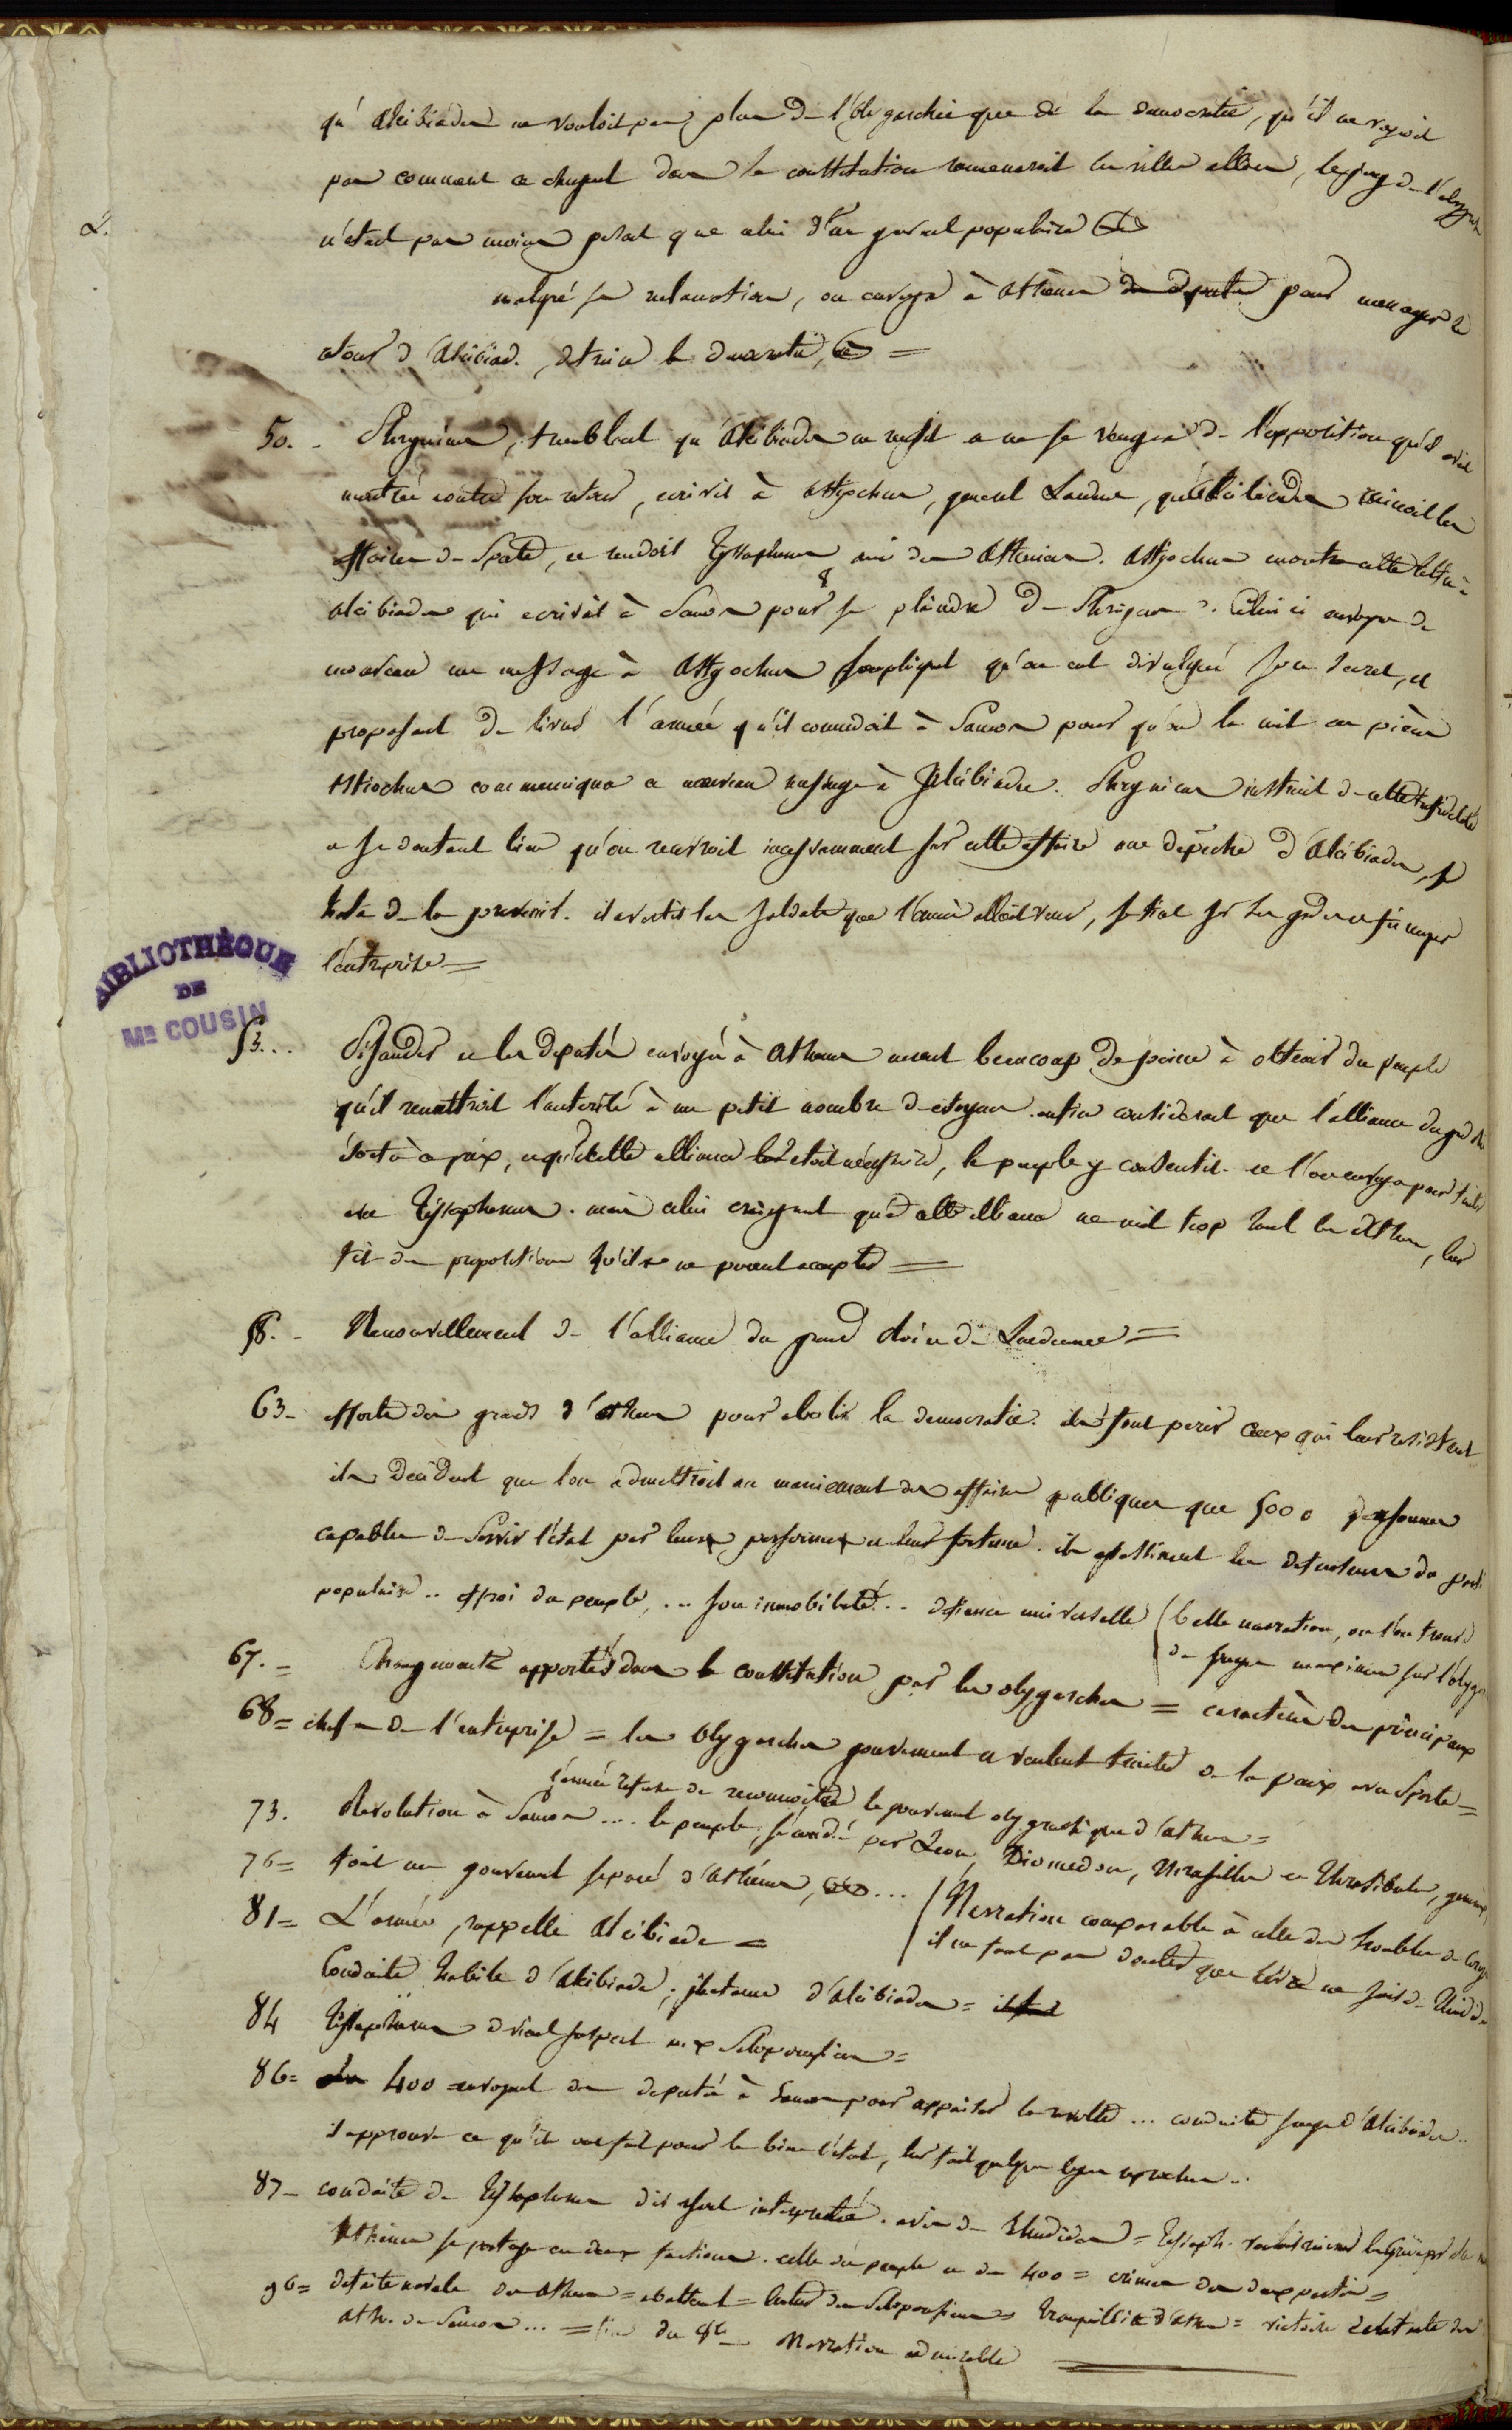 qu'alcibiades ne vouloit pas plus de l'oligarchie que de la democratie, qu'il ne voyoit
pas comment ce changement dans la constitution rameneroit les villes alliées, le joug de l'oligarch
n'étant pas moins pesant que celui d'un gouvernt populaire
malgré ses reclamations, on envoya à athènes des députés pour menager le
retour d'Alcibiad. , detruire la democratie, =
50. - Phrynicus, tremblant qu'Alcibiades ne revint et ne se vengea de l'opposition qu'il avoit
montrée contre son retour, ecrivit à astyochus, general Lacedem, qu'alcibiades ruinoit les
affaires de Sparte, et rendoit Tyssapherne ami des atheniens. Astyochus montre cette lettre à
alcibiades qui ecrivit à Samos pour se plaindre de Phrynicus. Celui ci envoya de
nouveau un message à Astyochus se plaignant qu'on eut divulgué son secret, et
proposant de livrer l'armée qu'il commandoit à Samos pour qu'on la mit en pièces
Astiochus communiqua ce nouveau message à Alcibiades. Phrynicus instruit de cette infidelité
et se doutant bien qu'on recevroit incessamment sur cette affaire une depeche d'Alcibiades, se
hata de la prevenir. il avertit les soldats que l'ennemi alloit venir, se tint sur ses gardes
l'entreprise =
BIBLIOTHÈQUE
DE
Mr COUSIN
53... Pisandre et les deputés envoyés à Athenes eurent beaucoup de peine à obtenir du peuple
qu'il remettroit l'autorité à un petit nombre de citoyens. enfin considerant que l'alliance du gd Roi
étoit à ce prix, et que cette alliance leur etoit nécessaire, le peuple y consentit. et l'on envoya pour traiter
avec Tyssapherne. mais celui craignant que cette alliance ne mit trop haut les Athen, leur
fit des propositions qu'ils ne purent accepter =
58. - Renouvellement de l'alliance du grand Roi et de Lacedemone =
63 - efforts des grands d'athenes pour abolir la democratie. ils font perir ceux qui leur resistent
ils decident que l'on admettroit au maniement des affaires publiques que 5000 personnes
capables de servir l'état par leurs personnes et leur fortune. ils assassinent les defenseurs du parti
populaire .. effroi du peuple, ... son immobilité... defiance universelle (belle narration, ou l'on trouve
de sages maximes sur l'olyga
67. = Changements apportés dans la constitution par les olygarches = caractère des principaux
68 = chefs de l'entreprise = les olygarches gouvernent et veulent traiter de la paix avec Sparte =
l'armée refuse de reconnoitre le gouvernt olygarchique d'athenes =
73. Revolution à Samos ... le peuple, secondé par Leon, Diomedon, Thrasille et Thrasibule, generaux
76 = fait un gouvernemt separé d'Athènes, ... (Narration comparable à celle des troubles de Corcy
il ne faut pas douter que ce livre ne soit de Thucid
81 = L'armée rappelle Alcibiade =
Conduite habile d'Alcibiade; jactance d'Alcibiades =
84 Tissapherne devient suspect aux Peloponesiens =
86 = Les 400 envoyent des deputés à Samos pour appaiser la revolte ... conduite sage d'Alcibiades ..
il approuve ce qu'ils ont fait pour le bien l'état, leur fait quelques legers reproches...
87 - conduite de Tyssapherne diversement interpretée. avis de Thucidide = Tissaph.
Athènes se partage en deux factions. celle du peuple et des 400 = crimes des deux partis =
96 = defaite navale des Athen = abattemt = lenteur des Peloponesiens = tranquillité d'athen = victoire eclatante des
ath. de Samos ... = fin du 8e Narration admirable